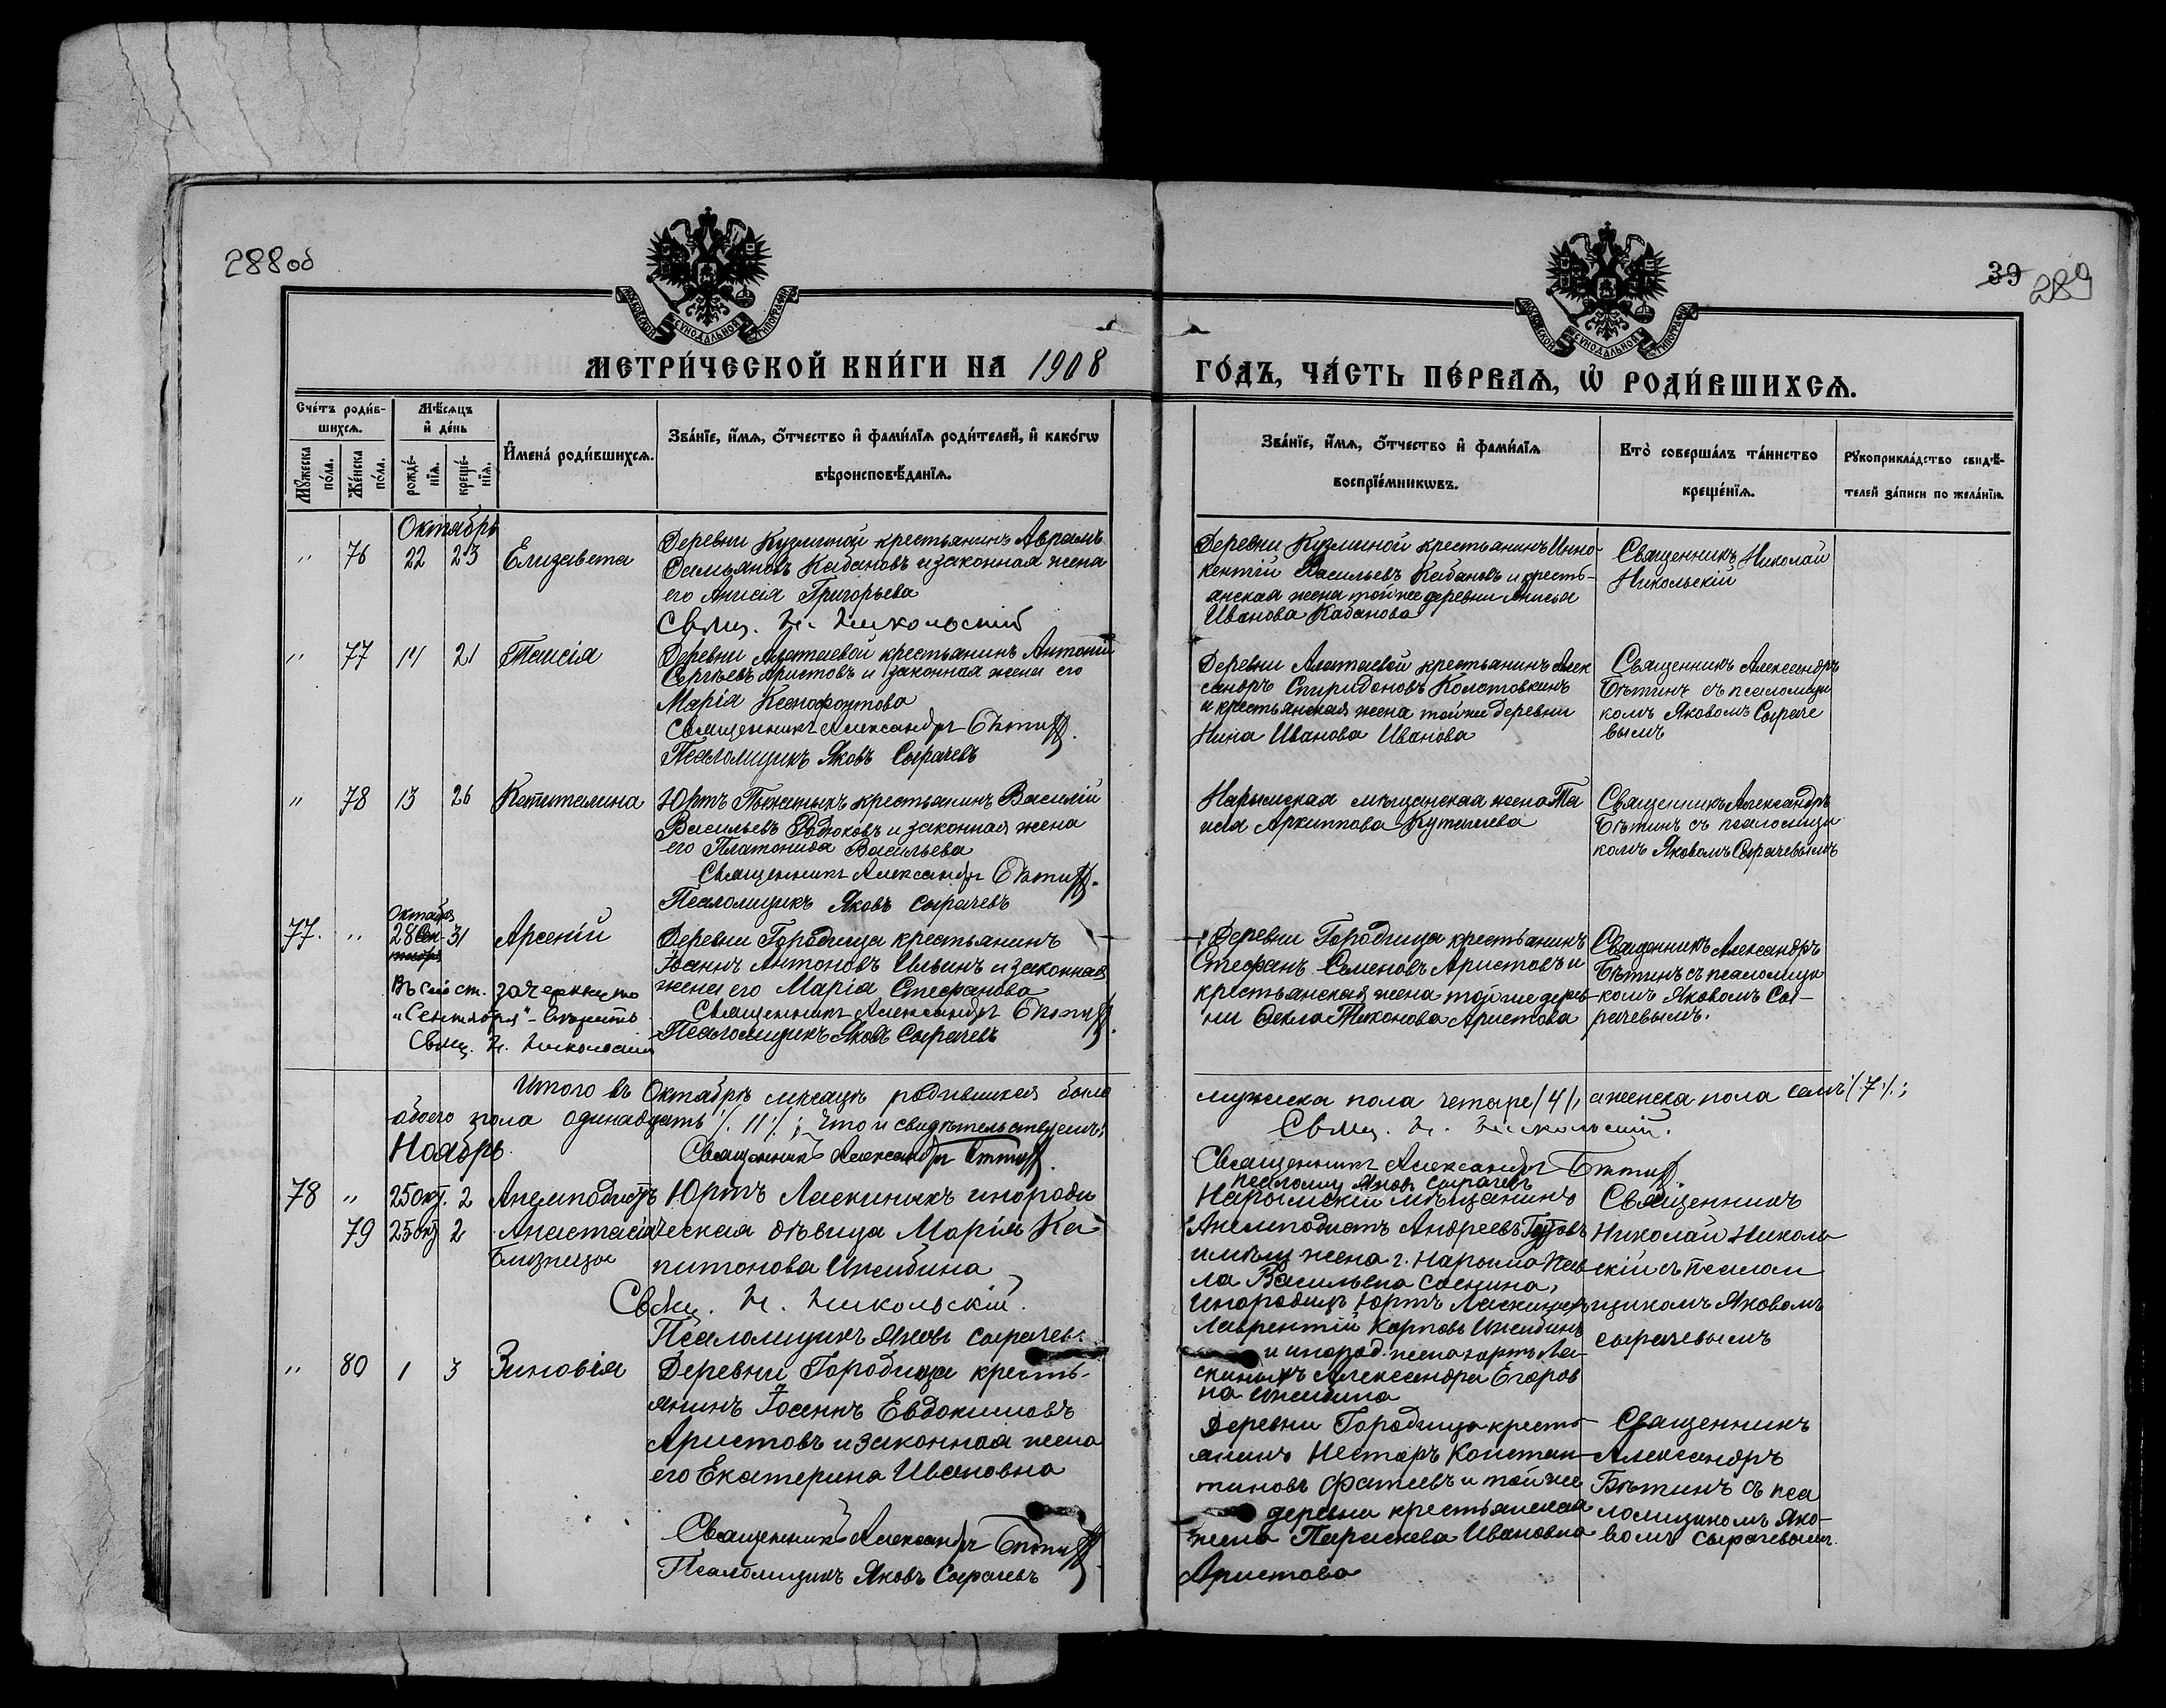 288 об
39 289
МОСКОВСКОЙ СѴНОДАЛЬНОЙ ТИПОГРАФІИ
МОСКОВСКОЙ СѴНОДАЛЬНОЙ ТИПОГРАФІИ
МЕТРИ́ЧЕСКОЙ КНИ́ГИ НА 1908
ГО́ДЪ, ЧА́СТЬ ПЕ́РВАѦ, Ѡ҆ РОДИ́ВШИХСѦ.
Сче́тъ роди́в-
шихсѧ.
Мѣ́сѧцъ
и҆ де́нь
И҆мена̀ роди́вшихсѧ.
Зва́нїе, и҆́мѧ, ѻ҆́тчество и҆ фами́лїѧ роди́телей, и҆ како́гѡ
вѣроисповѣ́данїѧ.
Мꙋ́жеска
по́ла.
Же́нска
по́ла.
рожде́-
нїѧ.
креще́-
нїѧ.
Зва́нїе, и҆́мѧ, ѻ҆́тчество и҆ фами́лїѧ
воспрїе́мникѡвъ.
Кто̀ соверша́лъ та́инство
креще́нїѧ.
Рꙋкоприкла́дство свидѣ́-
телей за́писи по жела́нїю.
Октябрь
" 76 22 23 Елизавета
Деревни Кузминой крестьянинъ Аврамъ
Дамьяновъ Кабановъ и законная жена
его Анисія Григорьева
Свящ. Н. Никольскій
Деревни Кузминой крестьянинъ Инно-
кентій Васильевъ Кабановъ и кресть-
янская жена той же деревни Анисья
Иванова Кабанова
Священникъ Николай
Никольскій
" 77 14 21 Таисія
Деревни Алатаевой крестьянинъ Антоній
Сергѣевъ Аристовъ и законная жена его
Марія Ксенофонтова
Священникъ Александръ Бѣтинъ.
Псаломщикъ Яковъ Сырачевъ
Деревни Алатаевой крестьянинъ Алек
сандръ Спиридоновъ Колотовкинъ
и крестьянская жена той же деревни
Нина Иванова Иванова
Священникъ Александръ
Бѣтинъ съ псаломщи
комъ Яковомъ Сыраче
вымъ
" 78 13 26 Капиталина
Юртъ Васильевъ
крестьянинъ Василій
и законная жена
его Платонида Васильева
Священникъ Александръ Бѣтинъ.
Псаломщикъ Яковъ Сырачевъ
Нарымская мѣщанская жена Та
исія Архиппова
Священникъ Александръ
Бѣтинъ съ псаломщи
комъ Яковомъ Сырачевымъ
77. " Октября 28 Сен-тября 31 Арсеній
Деревни Городища крестьянинъ
Іоаннъ Антоновъ Ильинъ и законная
жена его Марія Стефанова
Священникъ Александръ Бѣтинъ
Псаломщикъ Яковъ Сырачевъ
Въ сей ст. зачеркнуто
"Сентября"
Свящ. Н. Никольскій
Деревни Городища крестьянинъ
Стефанъ Семеновъ Аристовъ и
крестьянская жена той же дерев-
ни Фекла Тихонова Аристова
Священникъ Александръ
Бѣтинъ съ псаломщи
комъ Яковомъ Сы-
рачевымъ.
Итого въ Октябрѣ мѣсяцѣ родившихся было
мужска пола четыре /4/, а женска пола семь /.7./;
обоего пола одинадцать /. 11 /.; Что и свидѣтельствуемъ:
Свящ. Н. Никольскій.
Священникъ Александръ Бѣтинъ.
Священникъ Александръ Бѣтинъ
псаломщ Яковъ Сырачевъ
Ноябрь
78 " 25 окт. 2 Анемподистъ
79 25 окт 2 Анастасія
Близнецы
Юртъ Ласкиныхъ инороди
ческая дѣвица Марія Ка-
питонова Ижибина
Свящ. Н. Никольскій.
Псаломщикъ Яковъ Сырачевъ
Нарымскій мѣщанинъ
Анемподистъ Андреевъ
и мѣщ жена г. Нарыма
ла Васильевна
Инородецъ Юртъ Ласкиныхъ
Лаврентій Карповъ Ижибинъ
и инород. жена юртъ Ла-
скиныхъ Александра Егоров
на Ижибина
Священникъ
Николай Николь
скій съ псалом
щикомъ Яковомъ
Сырачевымъ
" 80 1 3 Зиновія
Деревни Городища кресть-
янинъ Іосифъ Евдокимовъ
Аристовъ и законная жена
его Екатерина Ивановна
Священникъ Александръ Бѣтинъ
Псаломщикъ Яковъ Сырачевъ
Деревни Городища кресть-
янинъ Несторъ Констан-
тиновъ Фатеевъ и той же
деревни крестьянская
жена Параскева Ивановна
Аристова
Священникъ
Александръ
Бѣтинъ съ пса
ломщикомъ Яко-
вомъ Сырачевымъ.